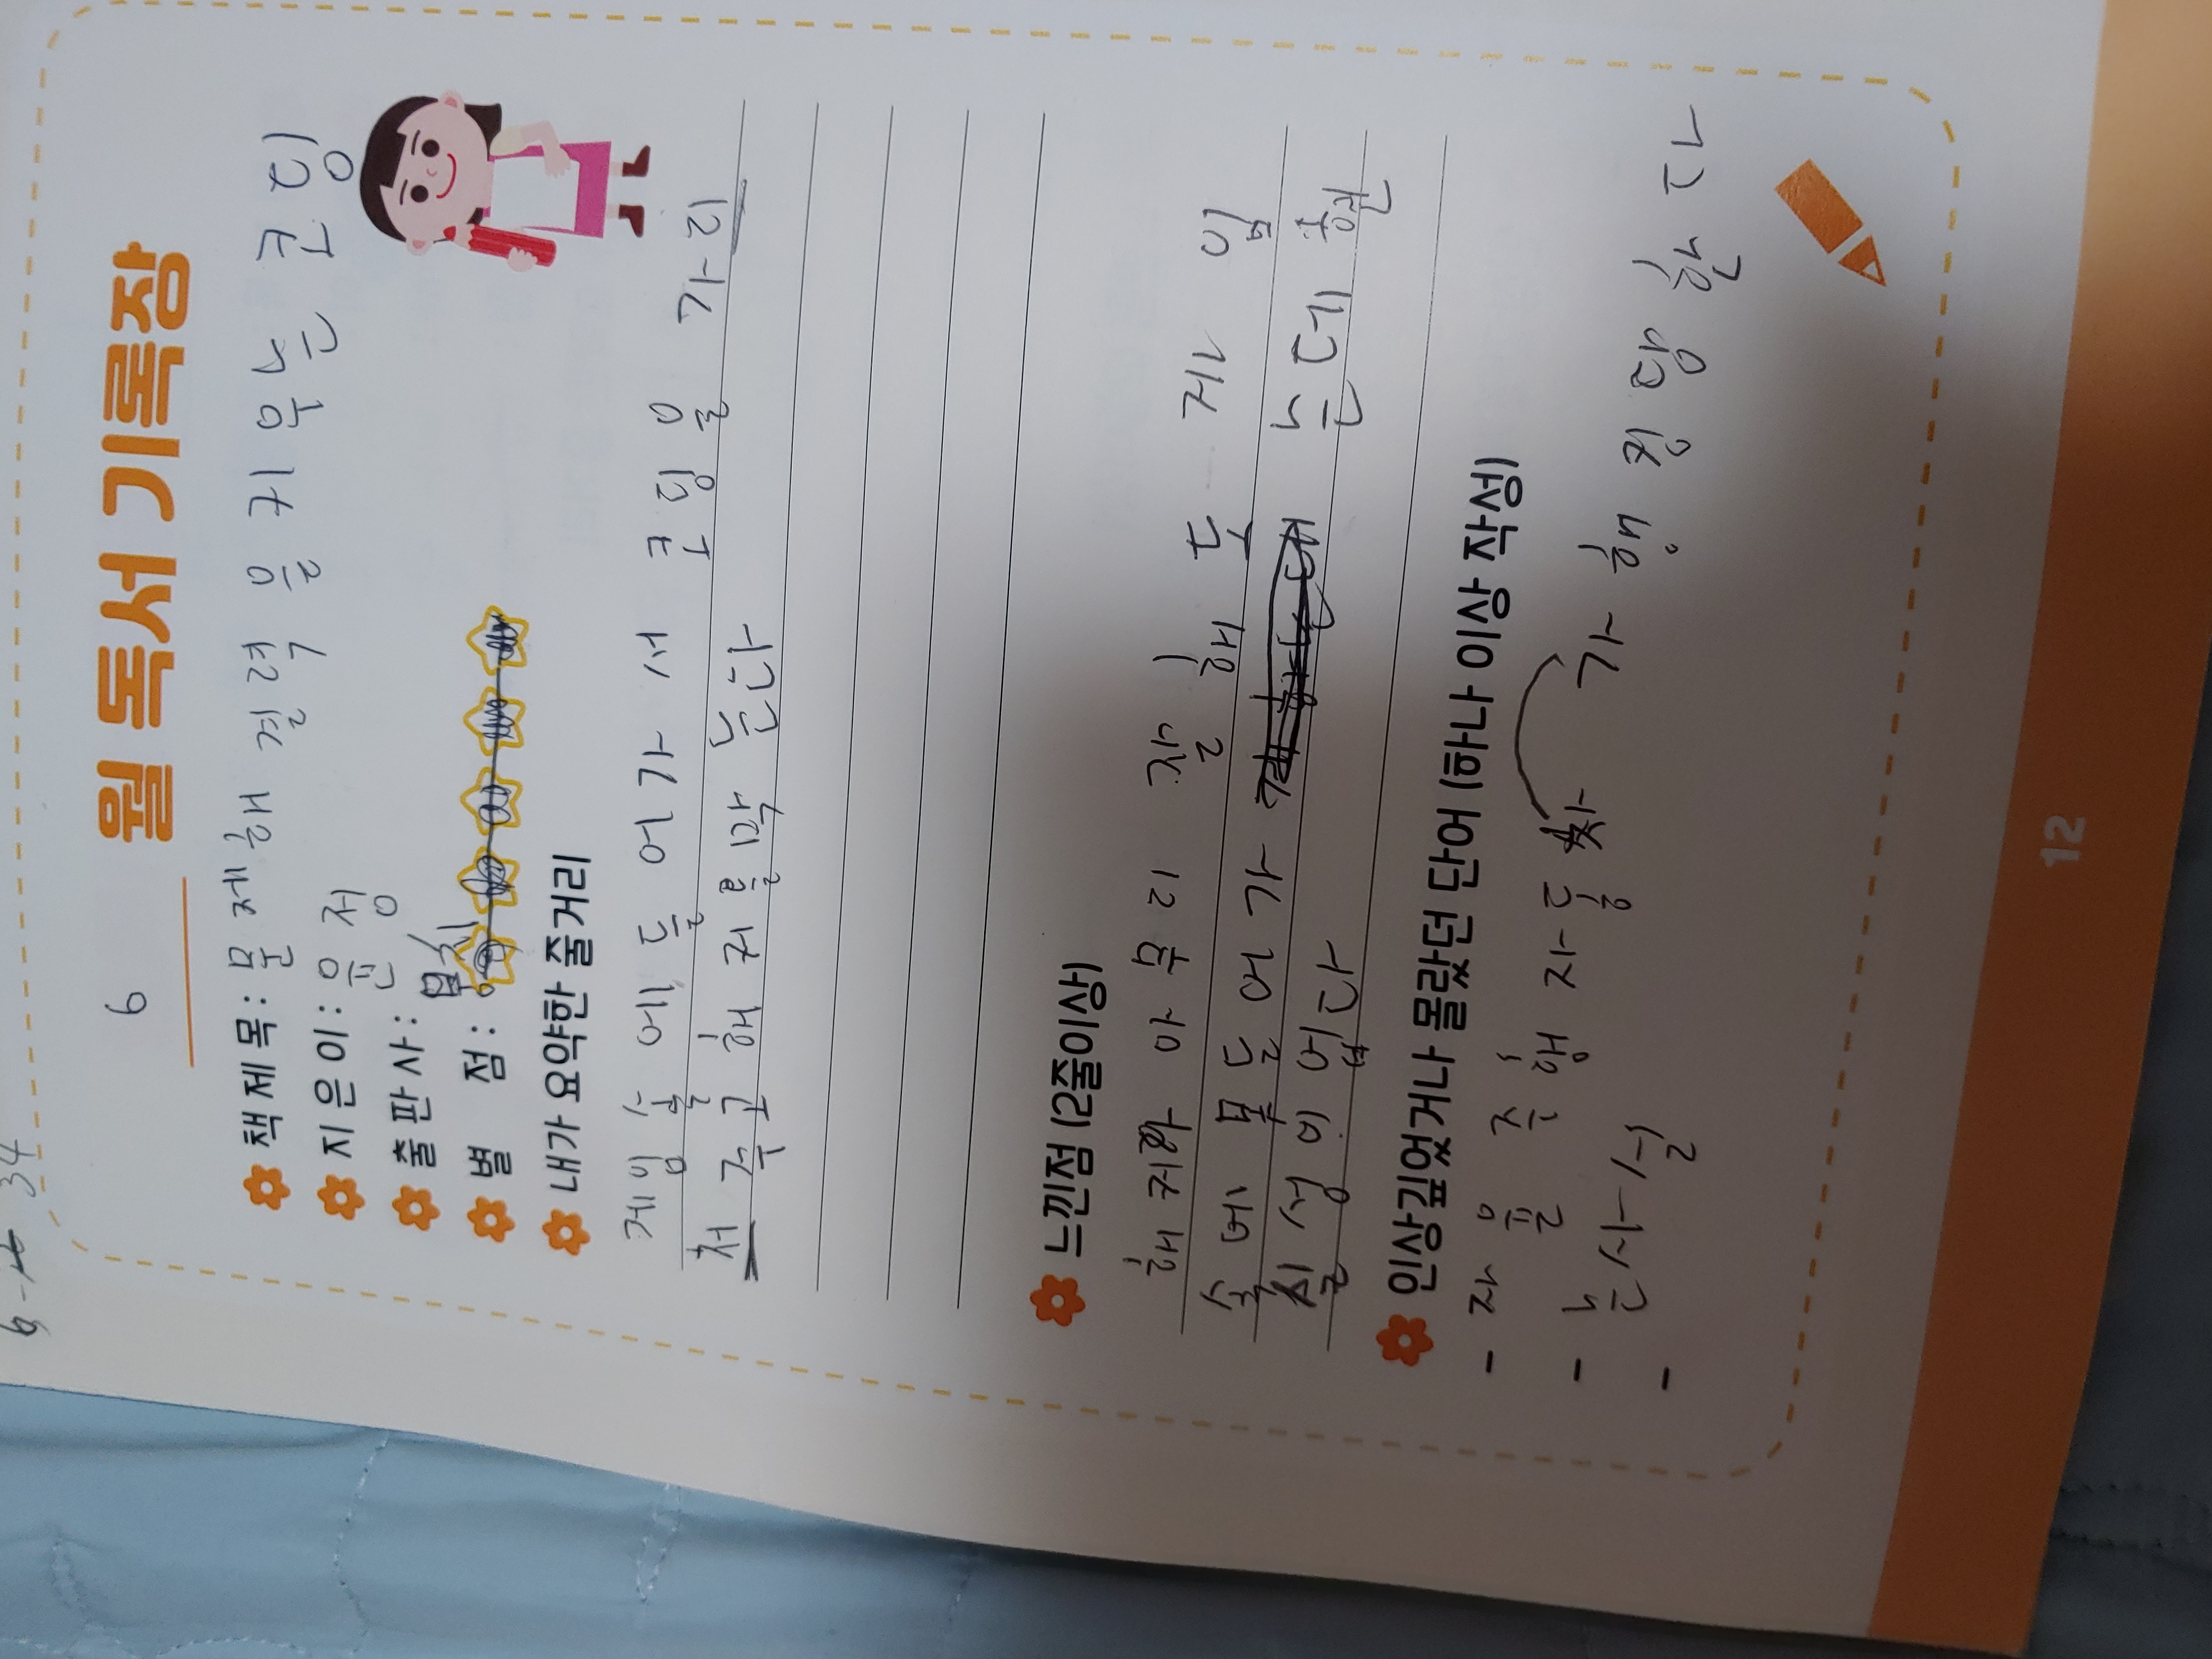 34
6 월 독서 기록장
책 제 목 : 문제해결력을키우는 코딩
지 은 이 : 윤정
출 판 사 :
별 점 :
내가 요약한 줄거리
게임 속에 들어가서 코딩을 가리
처 주고 해커를막는다
느낀점 (2줄이상)
해커와 아무리 잘해도 게임
속에 못들어가 는데 현
실성이 없다
인상깊었거나 몰랐던 단어 (하나 이상 작성)
- 자율 주행 자동차가 해킹당한다
- 는사실
-
12